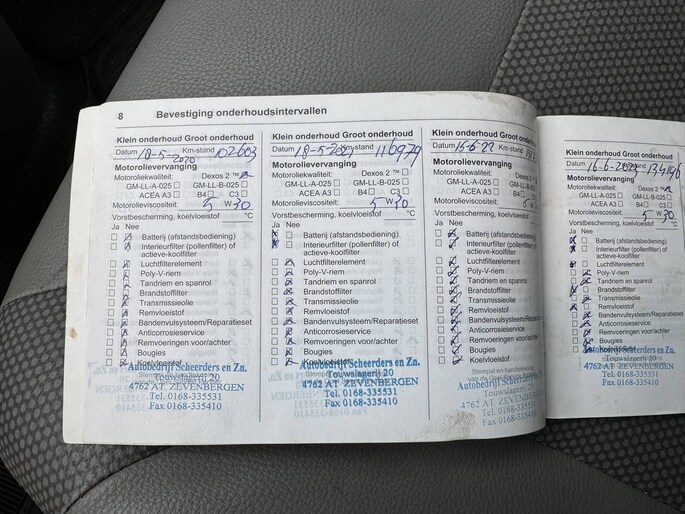 8 Bevestiging onderhoudsintervallen
Klein onderhoud Groot onderhoud
Datum 18-5-2020 Km-stand 102603
Motorolievervanging
Motoroliekwaliteit: Dexos 2 ™
GM-LL-A-025 GM-LL-B-025
ACEA A3 B4 C3
Motorolieviscositeit: 5 W 30
Vorstbescherming, koelvloeistof °C
Ja Nee
Batterij (afstandsbediening)
Interieurfilter (pollenfilter) of
actieve-koolfilter
Luchtfilterelement
Poly-V-riem
Tandriem en spanrol
Brandstoffilter
Transmissieolie
Remvloeistof
Bandenvulsysteem/Reparatieset
Anticorrosieservice
Remvoeringen voor/achter
Bougies
Koelvloeistof
Autobedrijf Scheerders en Zn.
Touwslagerij 20
4762 AT ZEVENBERGEN
Tel. 0168-335531
Fax 0168-335410
Klein onderhoud Groot onderhoud
Datum 18-5-2021 Km-stand 116979
Motorolievervanging
Motoroliekwaliteit: Dexos 2 ™
GM-LL-A-025 GM-LL-B-025
ACEA A3 B4 C3
Motorolieviscositeit: 5 W 30
Vorstbescherming, koelvloeistof °C
Ja Nee
Batterij (afstandsbediening)
Interieurfilter (pollenfilter) of
actieve-koolfilter
Luchtfilterelement
Poly-V-riem
Tandriem en spanrol
Brandstoffilter
Transmissieolie
Remvloeistof
Bandenvulsysteem/Reparatieset
Anticorrosieservice
Remvoeringen voor/achter
Bougies
Koelvloeistof
Autobedrijf Scheerders en Zn.
Touwslagerij 20
4762 AT ZEVENBERGEN
Tel. 0168-335531
Fax 0168-335410
Klein onderhoud Groot onder
Datum 15-6-22 Km-stand
Motorolievervanging
Motoroliekwaliteit: Dexos 2
GM-LL-A-025 GM-LL-B
ACEA A3 B4
Motorolieviscositeit:
Vorstbescherming, koelvloeistof
Ja Nee
Batterij (afstandsbediening)
Interieurfilter (pollenfilter) of
actieve-koolfilter
Luchtfilterelement
Poly-V-riem
Tandriem en spanrol
Brandstoffilter
Transmissieolie
Remvloeistof
Bandenvulsysteem/Repar
Anticorrosieservice
Remvoeringen voor/acht
Bougies
Koelvloeistof
Autobedrijf Scheerders en
Touwslagerij 20
4762 AT ZEVENBER
Tel. 0168-335531
Fax 0168-335410
Klein onderhoud Groot onderhoud
Datum 16-6-2023 Km-stand 134146
Motorolievervanging
Motoroliekwaliteit: Dexos 2
GM-LL-A-025 GM-LL-B-025
ACEA A3 B4 C3
Motorolieviscositeit: 5 W 30
Vorstbescherming, koelvloeistof °C
Ja Nee
Batterij (afstandsbediening)
Interieurfilter (pollenfilter) of
actieve-koolfilter
Luchtfilterelement
Poly-V-riem
Tandriem en spanrol
Brandstoffilter
Transmissieolie
Remvloeistof
Bandenvulsysteem/Reparatieset
Anticorrosieservice
Remvoeringen voor/achter
Bougies
Autobedrijf Scheerders en Zn.
Touwslagerij 20
4762 AT ZEVENBERGEN
Tel. 0168-335531
Fax 0168-335410